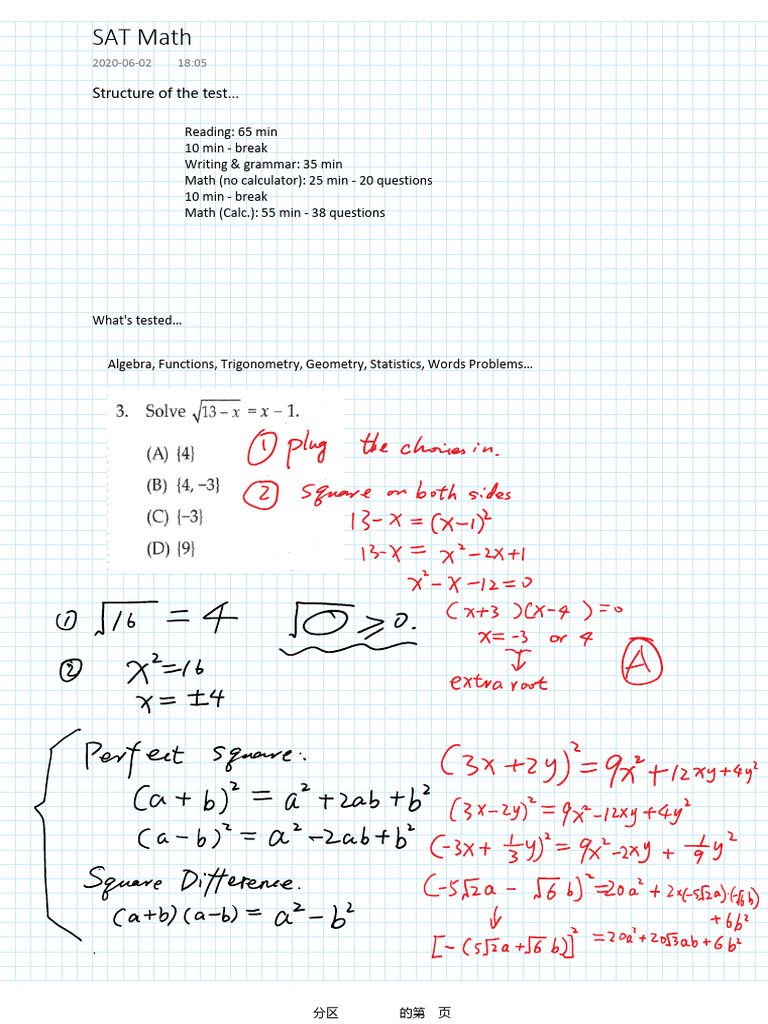 SAT Math
2020-06-02 18:05
Structure of the test...
Reading: 65 min
10 min - break
Writing & grammar: 35 min
Math (no calculator): 25 min - 20 questions
10 min - break
Math (Calc.): 55 min - 38 questions
What's tested...
Algebra, Functions, Trigonometry, Geometry, Statistics, Words Problems...
3. Solve √(13 – x) = x – 1.
(A) {4}
(B) {4, –3}
(C) {–3}
(D) {9}
① plug the choices in.
② square on both sides
13-x = (x-1)²
13-x = x²-2x+1
x²-x-12=0
(x+3)(x-4)=0
x=-3 or 4
↓
extra root
A
① √16 = 4 √○ ≥ 0.
② x²=16
x = ±4
Perfect square:
(a+b)² = a²+2ab+b²
(a-b)² = a²-2ab+b²
Square Difference.
(a+b)(a-b) = a²-b²
(3x+2y)² = 9x²+12xy+4y²
(3x-2y)² = 9x²-12xy+4y²
(-3x+1/3y)² = 9x²-2xy+1/9y²
(-5√2a-√6b)² = 20a²+2×(-5√2a)·(-√6b)
+6b²
↓
[-(5√2a+√6b)]² = 20a²+20√3ab+6b²
分区 的第 页